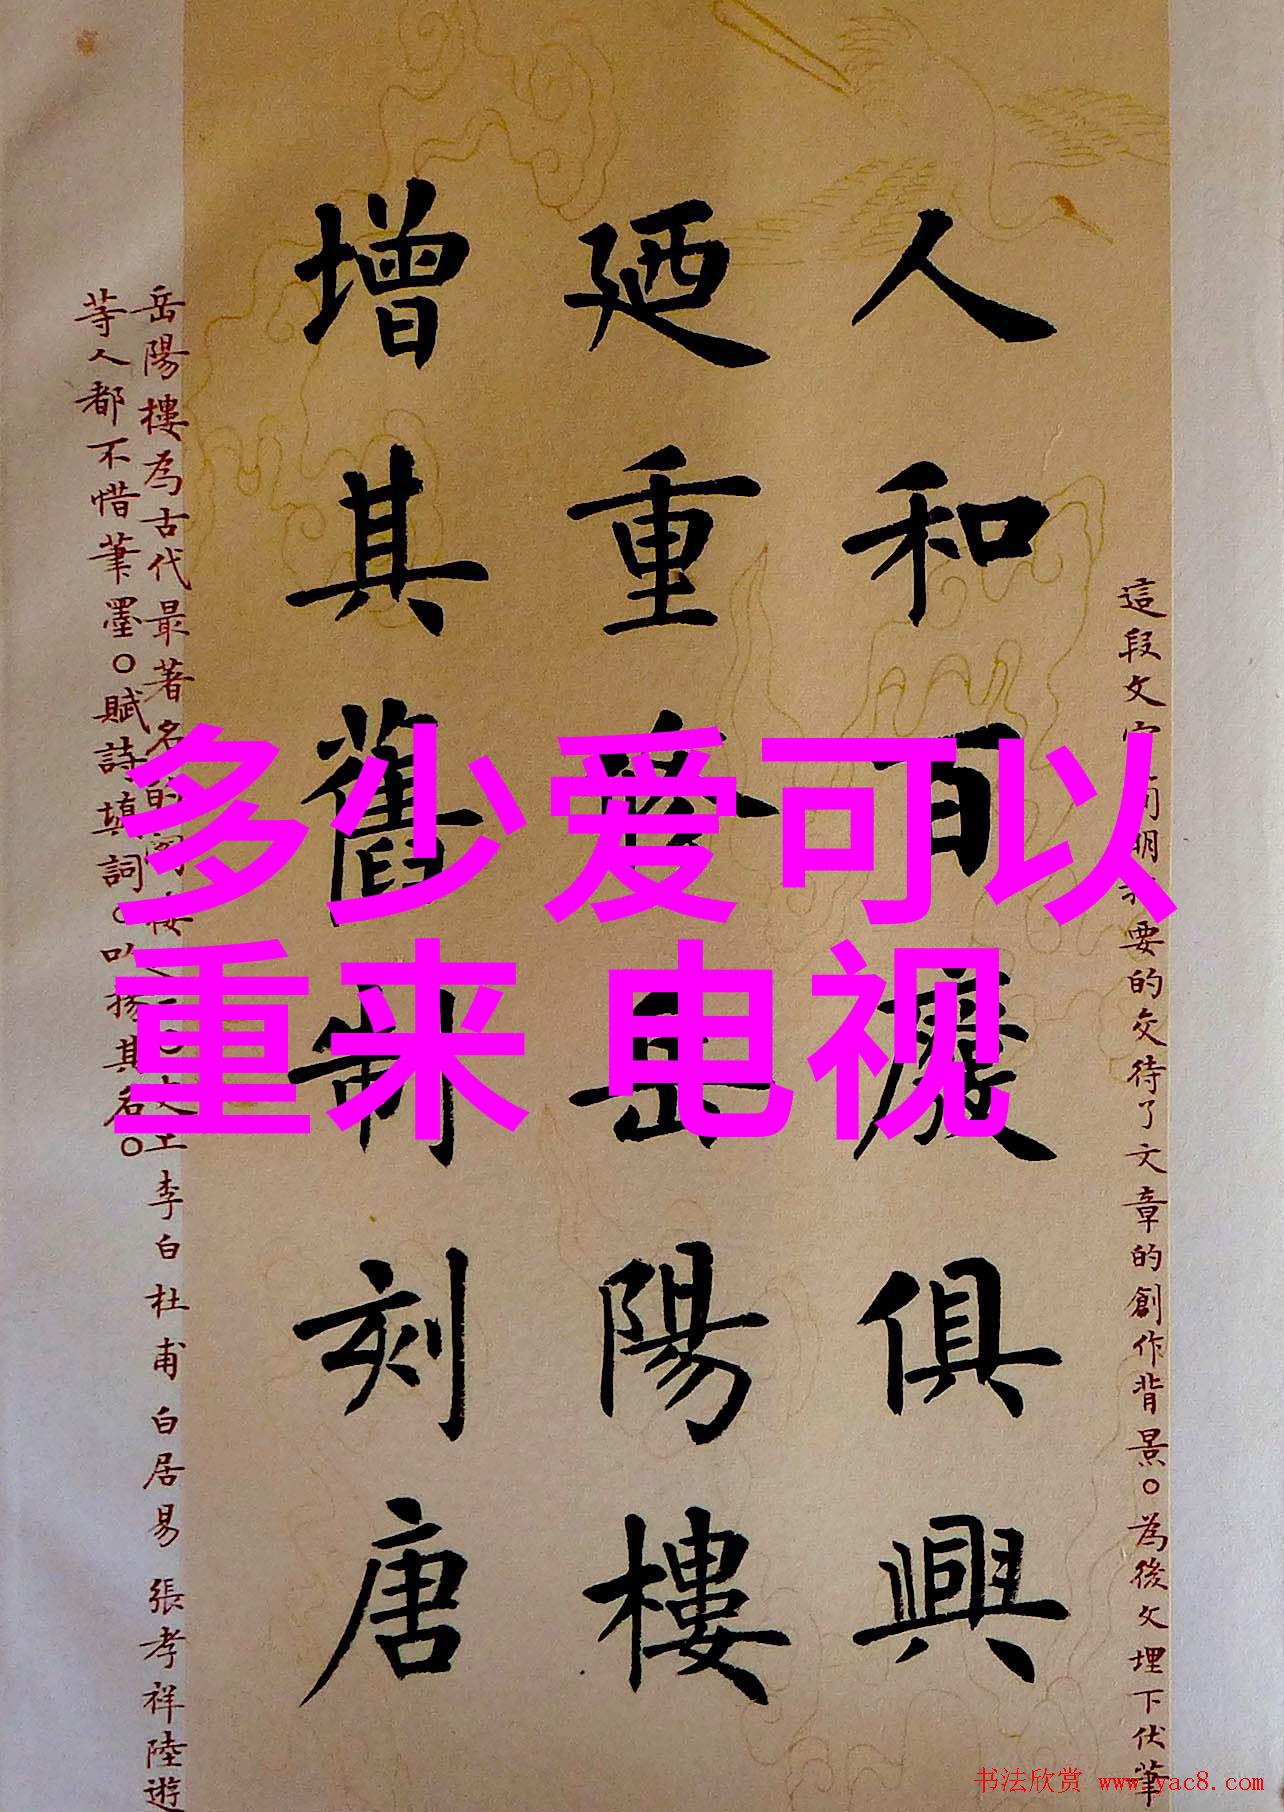 這段文明要的交待了文章的創作背景。為後文埋下伏筆
人和百廢俱興
廼重修岳陽樓
增其舊制刻唐
岳陽樓為古代最著名的樓李白 杜甫 白居易 張孝祥陸遊
等人都不惜筆墨。賦詩填詞。以揚其名。
多少爱可以
重来 电视
书法欣赏 www.yac8.com